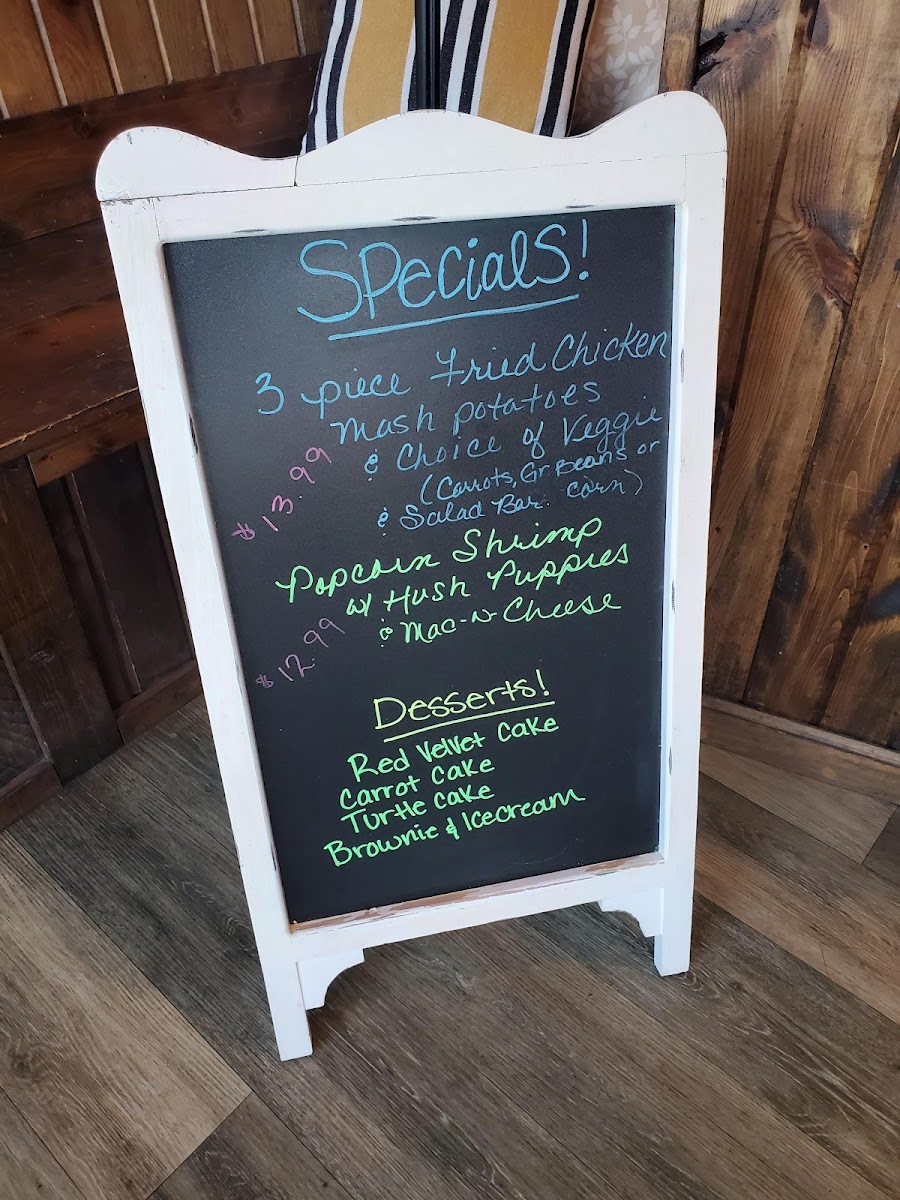 Specials!
3 piece Fried Chicken
Mash potatoes
& Choice of Veggie
(Carrots, Gr Beans or
& Salad Bar. corn)
$13.99
Popcorn Shrimp
w/ Hush Puppies
& Mac-N-Cheese
$12.99
Desserts!
Red Velvet Cake
Carrot Cake
Turtle Cake
Brownie & Icecream